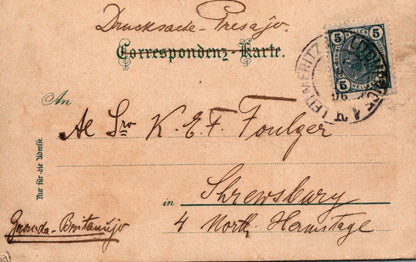 Drucksache-Presajo.
Correspondenz-Karte.
5 5
LEITMERITZ
06
An
Al Sro K. E. F. Foulger
Nur für die Adresse.
in Shrewsbury
4 North Hermitage